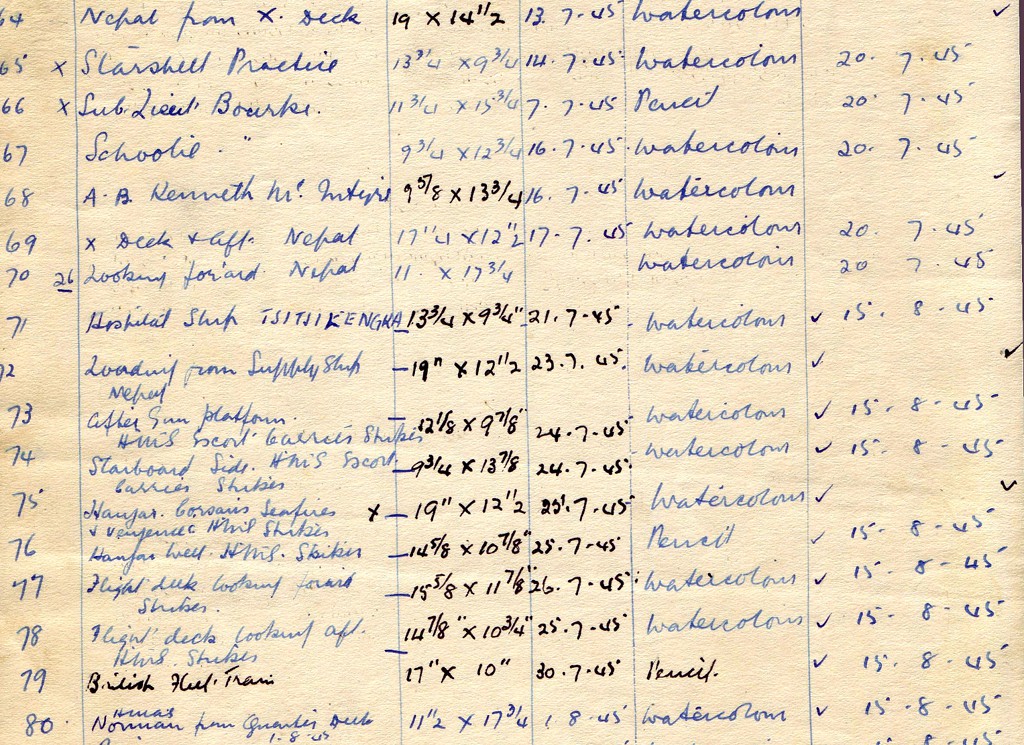 64 Nepal from X. Deck 19 x 14 1/2 13. 7-45 Watercolours ✓
65 x Starshell Practice 13 3/4 x 9 3/4 14. 7. 45 Watercolours 20. 7. 45
66 x Sub. Lieut Bourke. 11 3/4 x 15 3/4 7. 7. 45 Pencil 20. 7. 45
67 Schoolie. " 9 3/4 x 12 3/4 16. 7. 45 Watercolours 20. 7. 45
68 A. B. Kenneth Mc. Intyre 9 5/8 x 13 3/4 16. 7. 45 Watercolours ✓
69 x Deck & aft. Nepal 17 1/4 x 12 1/2 17. 7. 45 Watercolours 20. 7. 45
70 26 Looking for'ard. Nepal 11. x 17 3/4 Watercolours 20 7. 45
71 Hospital Ship TJITJILENGKA 13 3/4 x 9 3/4" 21. 7-45 Watercolours ✓ 15. 8-45
72 Loading from Supply Ship 19" x 12 1/2 23. 7. 45. Watercolours ✓ ✓
Nepal
73 After Gun platform. 12 1/8 x 9 7/8" 24. 7-45 Watercolours ✓ 15. 8-45
HMS Escort Carrier Striker
74 Starboard Side. HMS Escort 9 3/4 x 13 7/8 24. 7-45. Watercolours ✓ 15. 8-45
Carrier Striker
75 Hangar. Corsairs Seafires x 19" x 12 1/2 25. 7-45 Watercolours ✓ ✓
& Vengence HMS Striker
76 Hangar Well. HMS. Striker 14 5/8 x 10 7/8" 25. 7-45 Pencil ✓ 15. 8-45
77 Flight deck looking forard 15 5/8 x 11 7/8" 26. 7-45 Watercolours ✓ 15. 8-45
Striker.
78 Flight deck looking aft. 14 7/8" x 10 3/4" 25. 7-45 Watercolours ✓ 15. 8-45
HMS. Striker
79 British Fleet Train 17" x 10" 30. 7-45 Pencil. ✓ 15. 8-45
80. HMAS Norman from Quarter Deck 11 1/2 x 17 3/4 1. 8-45 Watercolours ✓ 15-8-45
1-8-45